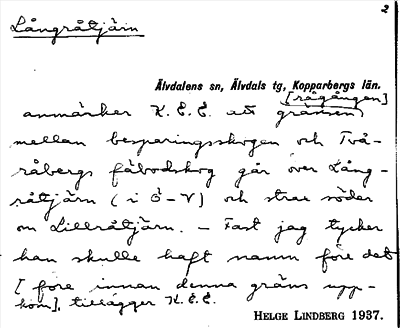 2
Långråtjärn
Älvdalens sn, Älvdals tg, Kopparbergs län.
[rågången]
anmärker K.E.E. att gränsen
mellan besparingsskogen och Två-
råbergs fäbodskog går över Lång-
råtjärn (i Ö-V) och strax söder
om Lillråtjärn. – Fast jag tycker
han skulle haft namn före det
[före innan denna gräns upp-
kom], tillägger K.E.E.
HELGE LINDBERG 1937.